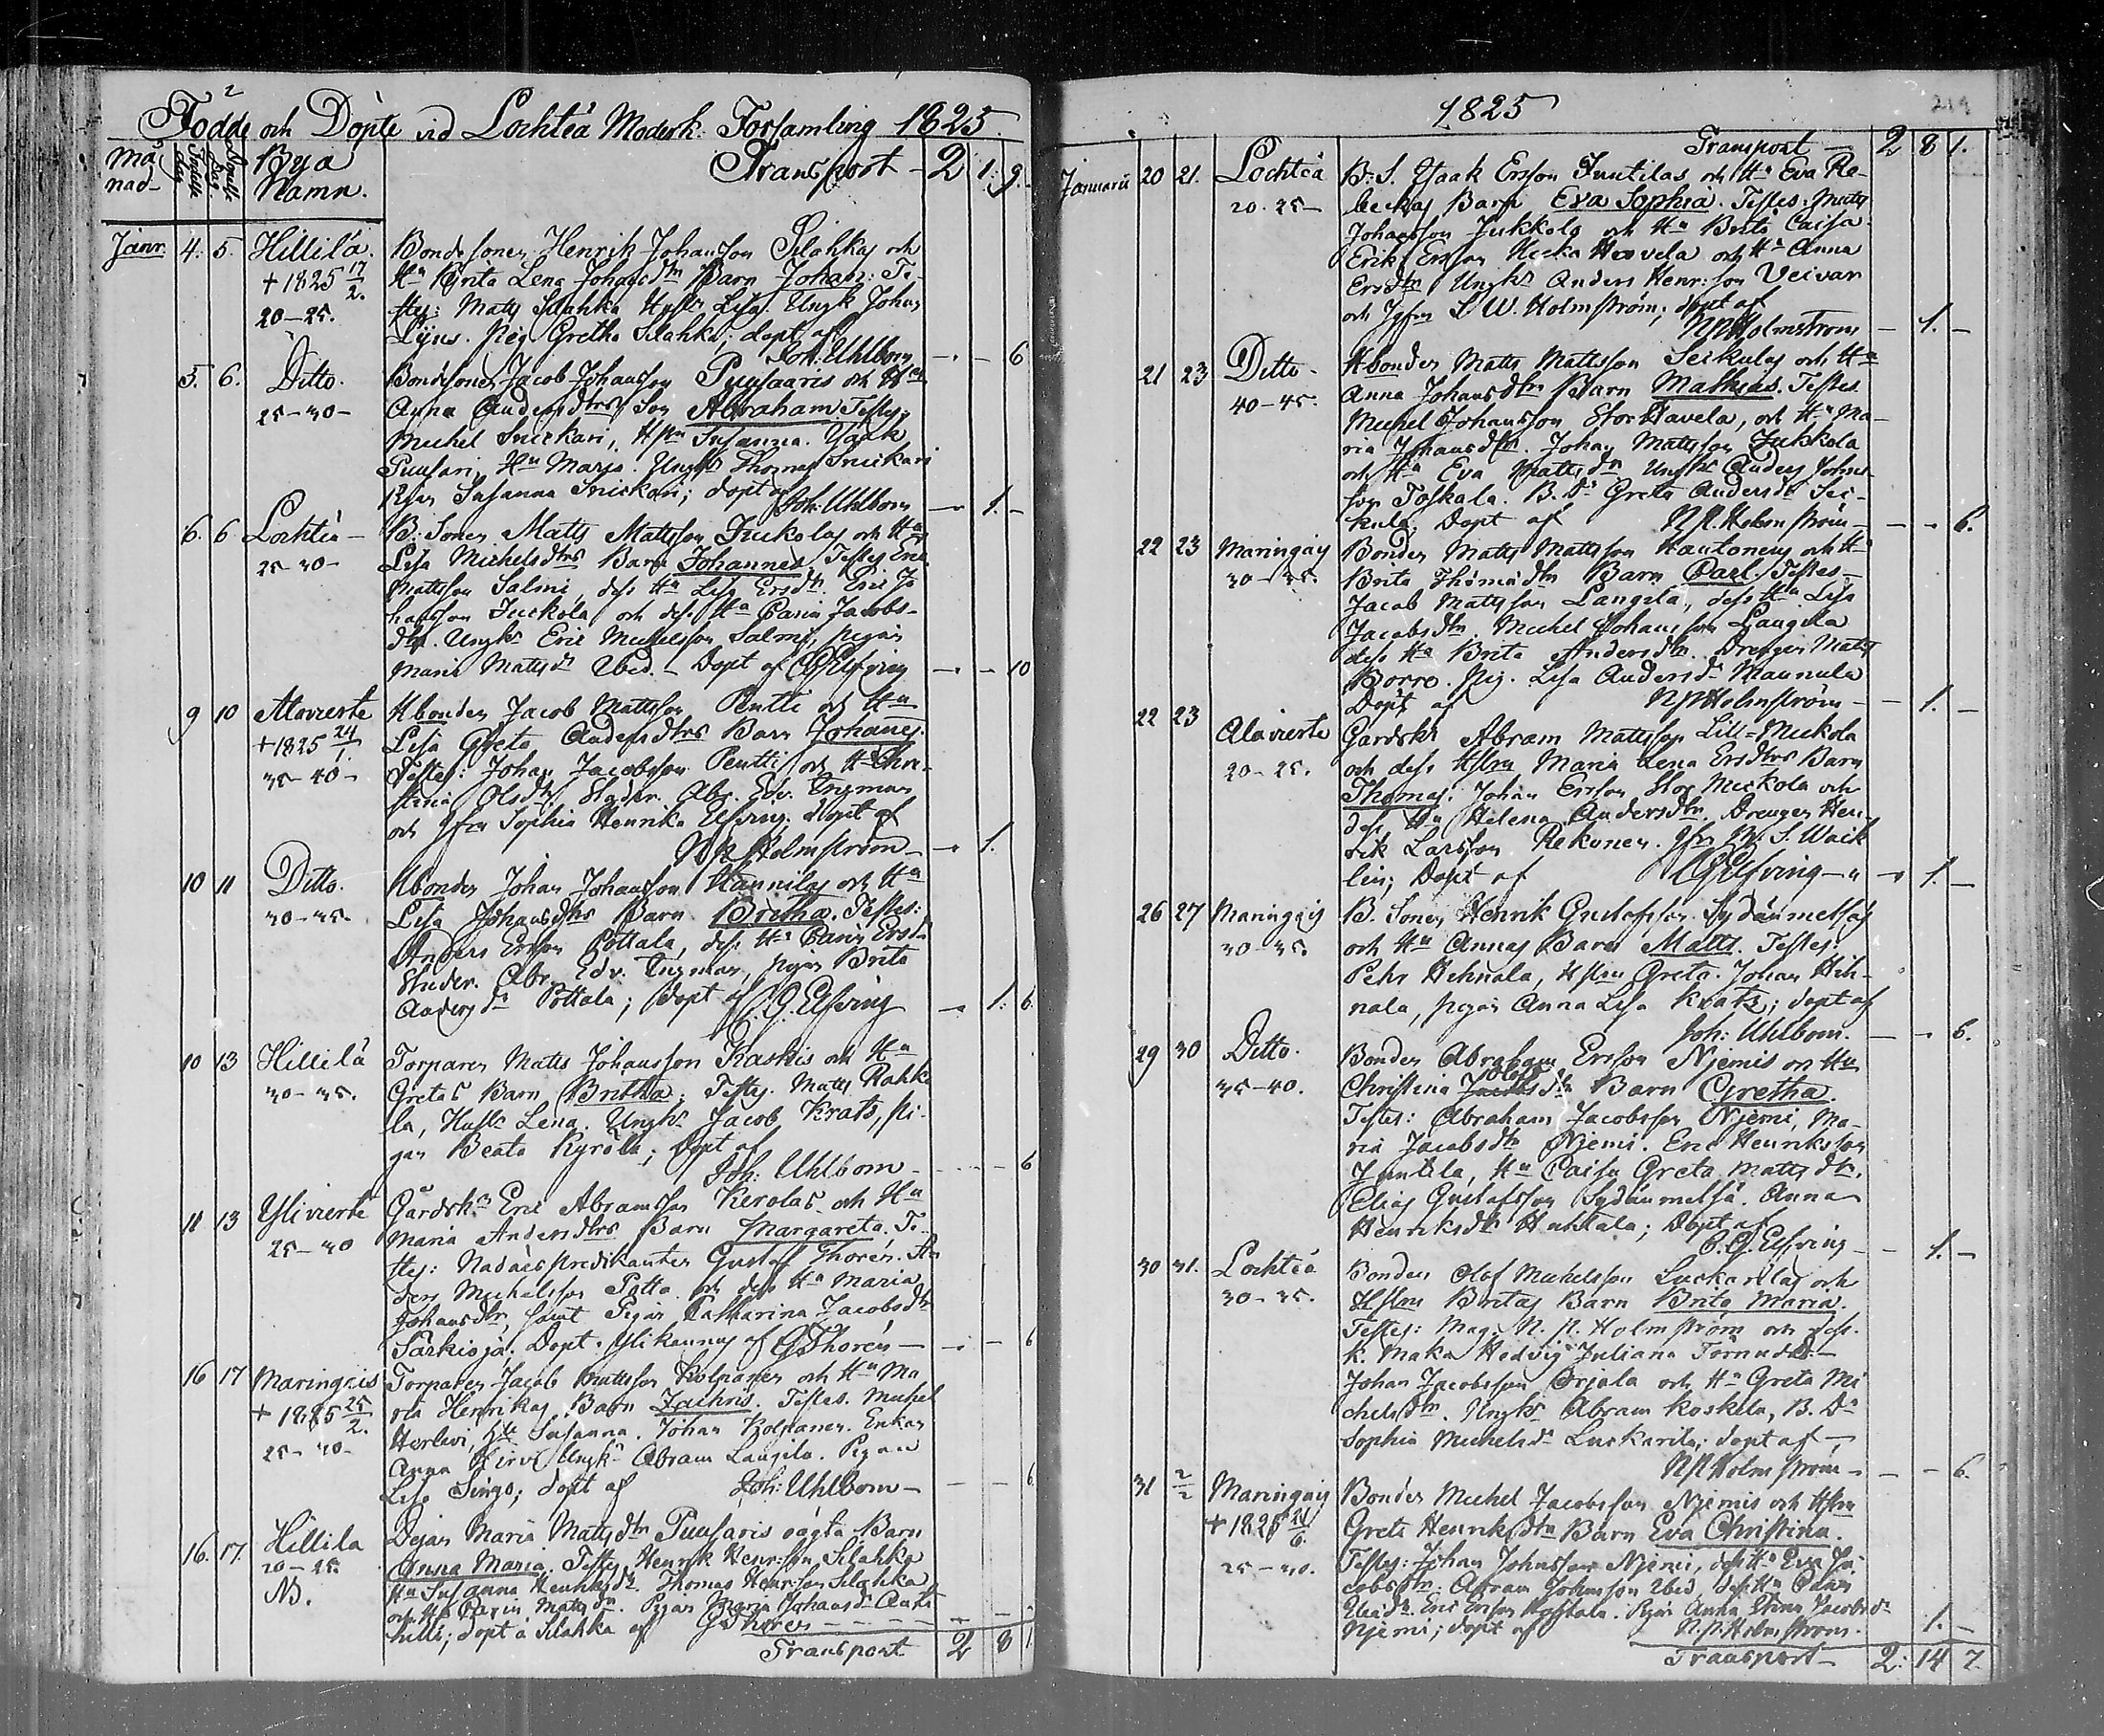 Födde och Döpte vid Lochteå Moderk: Församling 1825.
Må
nad
Födelse
dag
Döpelse
Dag
Bya
Namn.
Transport - 2 1. 9.
Janr. 4. 5. Hillilä. Bondesonen Henrik Johansson Silahkas och
+ 1825 17/2. Hu Brita Lena Johansdtrs Barn Johan: Te-
20-25. stes: Matts Silahka Hustr. Lisa. Ungk Johan
Pig Gretha Silahka; döpt af
Joh: Uhlbom - - 6
5. 6. Ditto. Bondesonen Jacob Johansson Puusaaris och Hus
25-30- Anna Andersdtrs Son Abraham Testes:
Michel Snickari, Hustru Susanna. Isaak
Puusari, Hu Maria. Ungkr Thomas Snickari
Pigan Susanna Snickari; döpt af Joh: Uhlbom - 1. -
6. 6 Lochteå - B: Sonen Matts Mattsson Juckolas och Hu
25-30- Lisa Michelsdtrs Barn Johannes. Testes Eric
Mattsson Salmi, dess Hu Lisa Ersdtr. Eric Jo
hansson Juckola och dess Hu Carin Jacobs-
dtr. Ungkr Eric Michelsson Salmi, pigan
Maria Mattsdr Ibid. - Döpt af CG Elfving - - 10
9 10 Alavierte Hbonden Jacob Mattsson Pentti och Hu
+ 1825 24/1. Lisa Greta Andersdtrs Barn Johannes.
35-40- Testes: Johan Jacobsson Pentti och Hu Chri-
stina Olsdtr. Studer. Abr. Edv. Ingman
och Jfru Sophia Henrika Elfving. döpt af
N P Holmström - 1.
10 11 Ditto. Hbonden Johan Johansson Hannilas och Hu
30-35. Lisa Johansdtrs Barn Bretha. Testes:
Anders Ersson Pottala, dess Hu Carin Ersdr
Studer. Abr. Edv. Ingman, pigan Brita
Andersdr Pottala; Döpt af C. G. Elfving - 1. 6.
10 13 Hillilä Torparen Matts Johansson Kaskis och Hu
30-35. Gretas Barn Britha. Testes. Matts Rahko
la, Hustr Lena. Ungkr Jacob Krats, pi-
gan Beata Kyrölä; Döpt af
Joh: Uhlbom - - 6
11 13 Ylivierte Gårdskn Eric Abramsson Kerolas och Hu
25-30 Maria Andersdtrs Barn Margareta. Te-
stes: Nadårspredikanten Gustaf Thorén. An
ders Michelsson Potta och dess Hu Maria
Johansdtr, samt Pigan Catharina Jacobsdtr
Särkioja. Döpt i Ylikannus af G Thorén - - 6
16 17 Maringais Torparen Jacob Mattsson Kolpanen och Hu Ma
+ 1825 25/2. ria Henrikas Barn Zachris. Testes. Michel
25-30- Herlevi, Hu Susanna. Johan Kolpanen. Enkan
Anna Ungk Abram Langila. Pigan
Lisa Singo; döpt af Joh: Uhlbom - - 6
16. 17. Hillila Pigan Maria Mattsdtr Puusaris oägta Barn
20-25. Anna Maria. Testes Henrik Henr:son Silahka
NB. Hu Susanna Henriksdtr. Thomas Henr:son Silahka
och Hu Carin Mattsdtr. Pigan Maria Johansdr
döpt å Silahka af G Thorén
Transport 2 8 1.
1825
219
Transport - 2. 8 1.
Januarii 20 21. Lochteå B: S. Isaak Ersson Juntilas och Hu Eva Re-
20-25- beckas Barn Eva Sophia. Testes: Matts
Johansson Jukkola och Hu Brita Caisa.
Erik Ersson Hovela och Hu Anna
Ersdtr. Ungkr Anders Henr:son Veivar
och Jgfrn S. W. Holmström; döpt af
NP Holmström - 1. -
21 23 Ditto - Hbonden Matts Mattsson Seikulas och Hu
40-45. Anna Johansdtrs Barn Mathias. Testes
Michel Johansson Stor Havela, och Hu Ma-
ria Johansdtr. Johan Mattsson Jukkola
och Hu Eva Mattsdtr Ungkr Anders Johns-
son Toskala. B. Dr Greta Andersdr Sei-
kula. Döpt af N P. Holmström - - 6.
22 23 Maringais Bonden Matts Mattsson Hautonens och Hu
30-35. Brita Thomædtr Barn Carl. Testes -
Jacob Mattsson Langila, dess Hu Lisa
Jacobsdtr. Michel Johansson Langila
dess Hu Brita Andersdtr. Drengen Matts
Borro. Pig. Lisa Andersdr Mannula
Döpt af N P Holmström - 1. -
22 23 Alavierte Gårdskn Abram Mattsson Lill-Mickola
20-25. och dess Hstru Maria Lena Ersdtrs Barn
Thomas. Johan Ersson Stor Mickola och
dess Hu Helena Andersdtr. Drengen Hen-
rik Larsson Rekonen. Jfr M. S. Wack
lin; Döpt af CG Elfving - 1. -
26 27 Maringais B. Sonen Henrik Gustafsson Sydänmetsäs
30-35. och Hu Annas Barn Matts. Testes:
Pehr Hihnala, Hstru Greta. Johan Hih-
nala, pigan Anna Lisa Krats; döpt af
Joh: Uhlbom. - - 6.
29 30 Ditto. Bonden Abraham Ersson Njemis och Hu
35-40. Christina Jacobs Olofsdtr Barn Gretha.
Testes: Abraham Jacobsson Njemi, Ma-
ria Jacobsdtr Njemi. Eric Henriksson
Juntila, Hu Caisa Greta Mattsdtr.
Elias Gustafsson Sydänmetsä. Anna
Henriksdtr Huhtala; Döpt af
C. G. Elfving - 1. -
30 31. Lochteå Bonden Olof Michelsson Luckarilas och
30-35. Hstru Britas Barn Brita Maria.
Testes: Mag. N. P. Holmström och dess
K. Maka Hedvig Juliana Törnudd. -
Johan Jacobsson Orjala och Hu Greta Mi
chelsdtr. Ungkr Abram Koskela, B. Dr
Sophia Michelsdr Luckarila; döpt af -
NP Holmström - - 6.
31 2/2 Maringais Bonden Michel Jacobsson Njemis och Hstru
+ 1825 24/6. Greta Henriksdtr Barn Eva Christina.
25-30. Testes: Johan Johansson Njemi, och Hu Eva Ja-
cobsdtr. Abram Johansson Ibid, dess Hu
Eric Ersson Pigan Anna Stina Jacobsdr
Njemi; döpt af N. P. Holmström. 1. -
Transport - 2. 14 7.